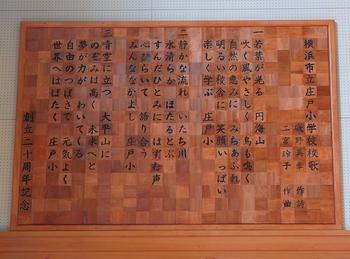 横浜市立庄戸小学校校歌
磯野英幸 作詩
二宮玲子 作曲
一 若葉が光る 円海山
吹く風やさしく 鳥も鳴く
自然の恵みに みちあふれ
明るい校舎に 笑顔いっぱい
楽しく学ぶ 庄戸小
二 静かな流れ いたち川
水清らか ほたるとぶ
すんだひとみに はずむ声
心ひらいて 語り合う
みんななかよし 庄戸小
三 青空に立つ 大平山に
のぞみは高く 未来へと
夢が力が わいてくる
自由のつばさで 元気よく
世界へはばたく 庄戸小
創立二十周年記念